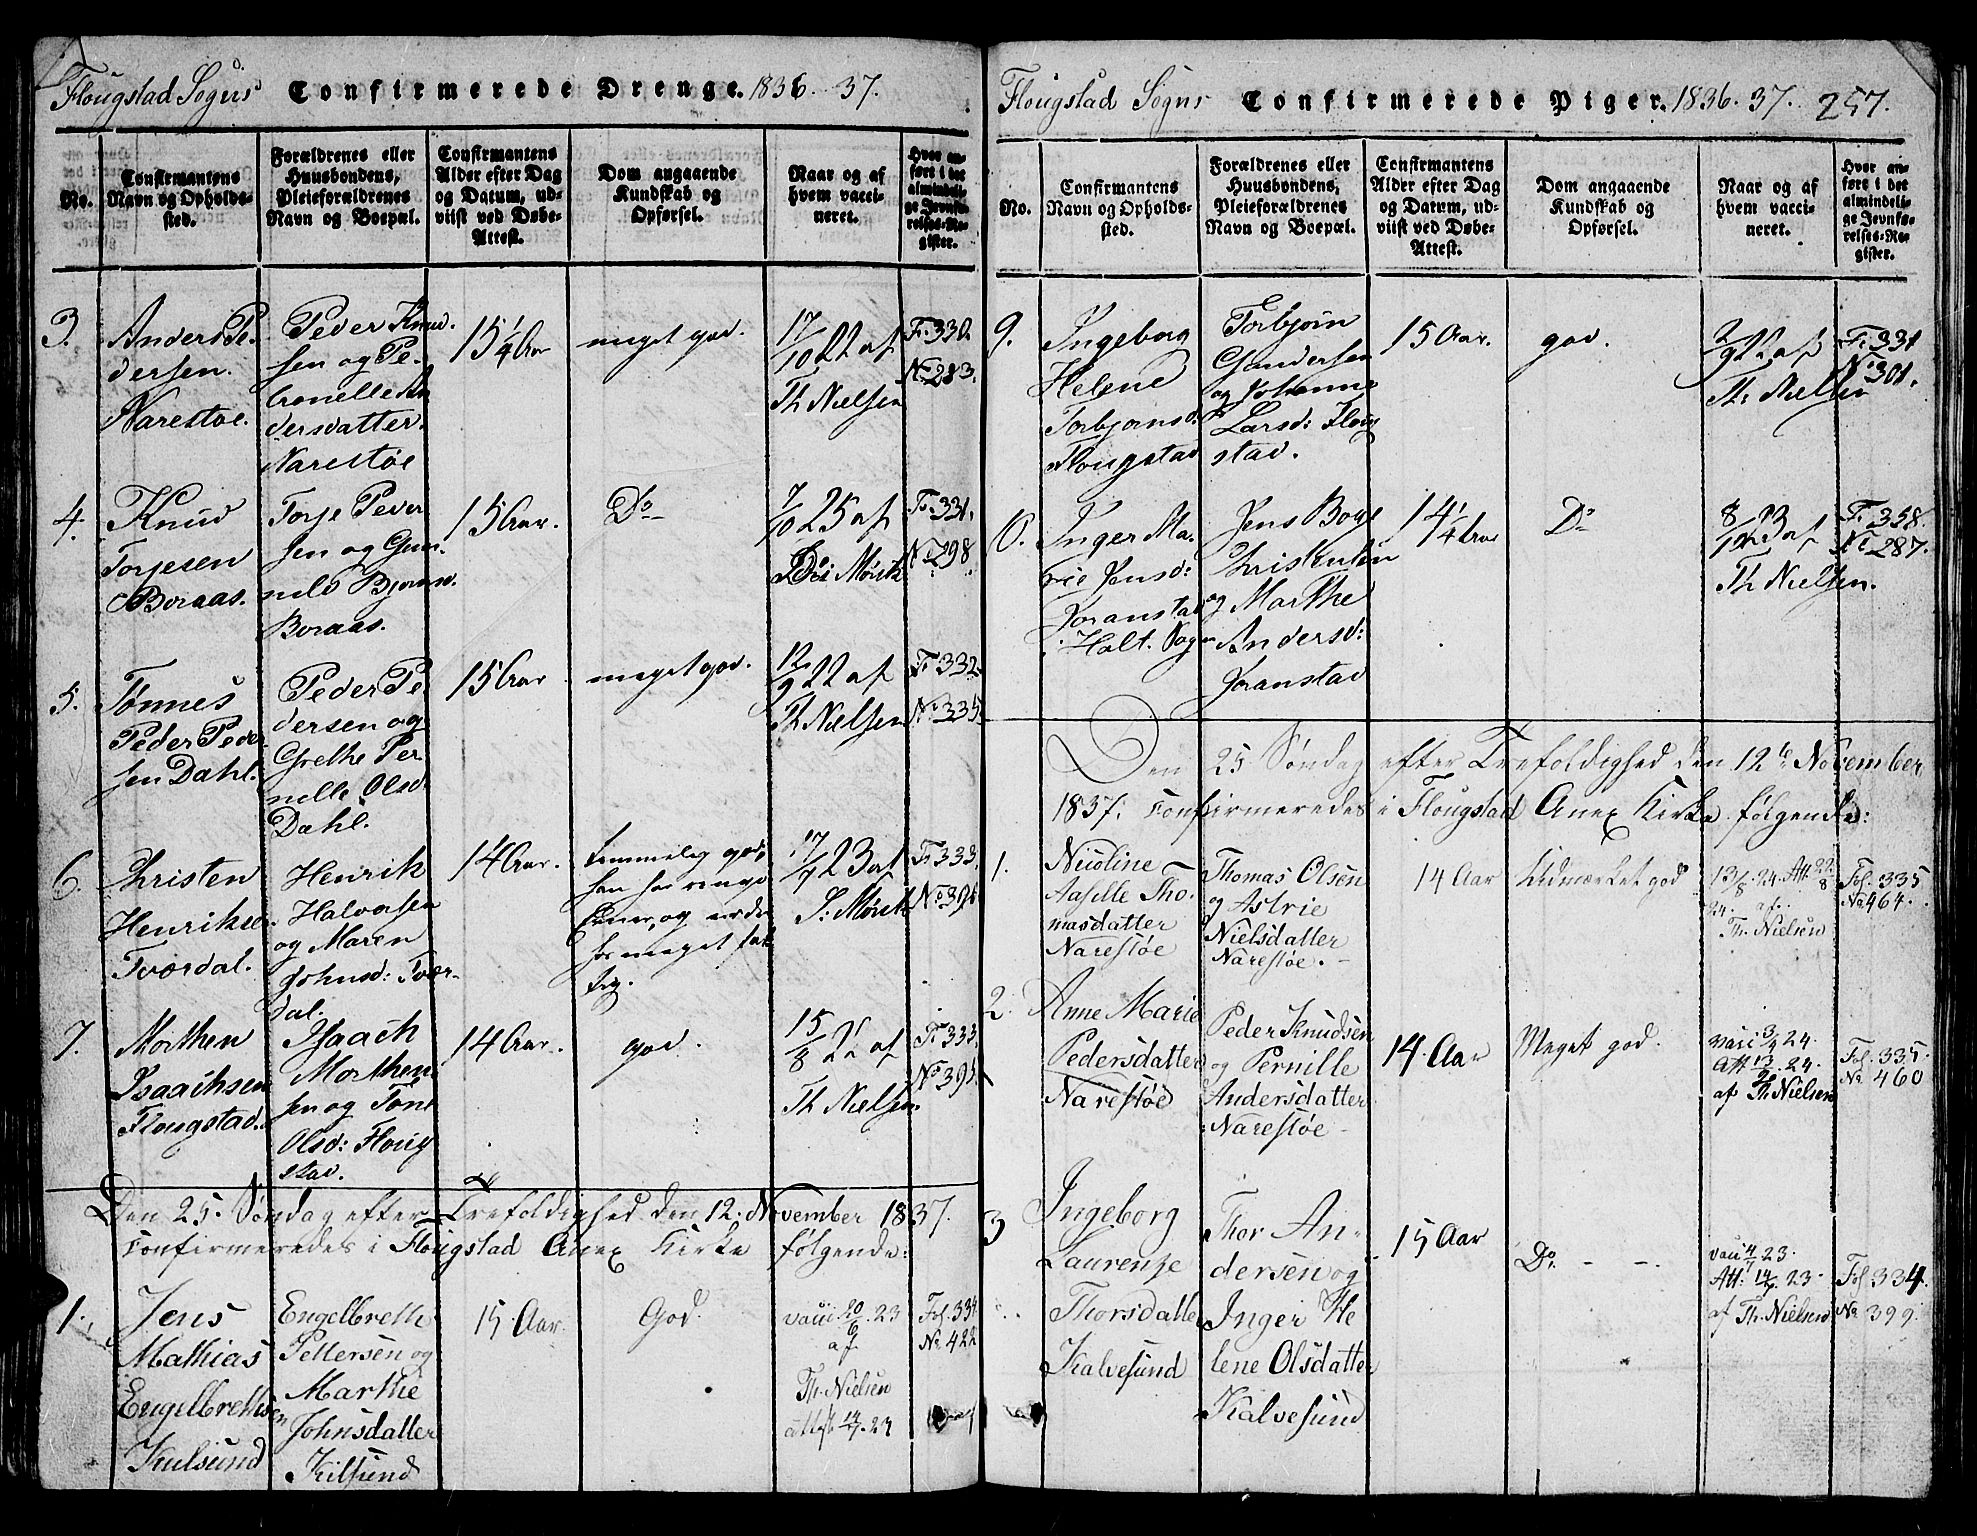 Flougstad Sogns Confirmerede Drenge. 1836. 37.
No.
Confirmantens
Navn og Opholds-
sted.
Forældrenes eller
Huusbondens,
Pleieforældrenes
Navn og Boepæl.
Confirmantens
Alder efter Dag
og Datum, ud-
viist ved Døbe-
Attest.
Dom angaaende
Kundskab og
Opførsel.
Naar og af
hvem vacci-
neret.
Hvor an-
ført i det
almindeli-
ge Jevnfø-
relses-Re-
gister.
3.
Anders Pe-
dersen.
Narestøe.
Peder Knud-
sen og Pe-
tronelle An
dersdatter.
Narestøe
15 1/4 Aar
meget god.
17/10 22 af
Th Nielsen
F. 330
No 283.
4.
Knud
Torjesen
Boraas.
Torje Peder
sen og Gun-
nild Bjørnsd.
Boraas.
15 Aar.
Do
7/10 25 af
Møritz
Fr 331.
No 298
5.
Tønnes
Peder Peder
sen Dahl.
Peder Pe
dersen og
Grethe Per
nelle Olsd:
Dahl.
15 Aar
meget god.
12/9 22 af
Th Nielsen
Fr 332
No 335
6.
Christen
Henrikse
Tværdal.
Henrik
Halvorsen
og Maren
Johnsd: Tvær-
dal.
14 Aar.
temmelig god,
han har ringe
Evner, og er der
for meget fat
tig.
17/7 23 af
S: Møritz
Fr 333.
No 396
7.
Morthen
Isaachsen
Flougstad.
Isaach
Morthen
sen og Tone
Olsd: Floug
stad.
14 Aar.
god.
15/8 22 af
Th Nielsen
Fr 333.
No 395.
Den 25. Søndag efter Trefoldighed den 12. November 1837.
Confirmeredes i Flougstad Anex Kirke følgende:
1.
Jens
Mathias
Engelbrethsen
Kiilsund
Engelbreth
Pettersen og
Marthe
Johnsdatter
Kilsund
15. Aar.
God.
vacci 20/6. 23
af
Th. Nielsen
attest 14/7. 23
Fol. 334
No 422
Flougstad Sogns Confirmerede Piger. 1836. 37. 257.
No.
Confirmantens
Navn og Opholds-
sted.
Forældrenes eller
Huusbondens,
Pleieforældrenes
Navn og Boepæl.
Confirmantens
Alder efter Dag
og Datum, ud-
viist ved Døbe-
Attest.
Dom angaaende
Kundskab og
Opførsel.
Naar og af
hvem vacci-
neret.
Hvor an-
ført i det
almindeli-
ge Jevnfø-
relses-Re-
gister.
9.
Ingeborg
Helene
Torbjørnsd:
Flougstad
Torbjørn
Gundersen
og Johanne
Larsd: Floug
stad.
15 Aar.
god.
2/9 22 af
Th: Nielsen
Fr 331
No 301.
10.
Inger Ma-
rie Jensd:
Joranstad
i Holt Sogn
Jens Boye
Christensen
og Marthe
Andersd:
Joranstad
14 1/4 Aar
Do
8/12 23 af
Th Nielsen.
Fr 358.
No 287.
Den 25 Søndag efter Trefoldighed den 12te November
1837. Confirmeredes i Flougstad Anex Kirke følgende:
1.
Nicoline
Aaselle Tho-
masdatter
Narestøe
Thomas Olsen
og Astrie
Nielsdatter
Narestøe.
14 Aar
Udmærket god
13/8. 24. Att 22/8
24. af.
Th. Nielsen
Fol. 335
No 464.
2.
Anne Marie
Pedersdatter
Narestøe
Peder Knudsen
og Pernille
Andersdatter
Narestøe
14. Aar
Meget god.
vacci 3/9 24.
Att 13/9. 24.
af Th. Nielsen
Fol. 335.
No 460
3
Ingeborg
Laurense
Thorsdatter
Kalvesund
Thor An-
dersen og
Inger He
lene Olsdatter
Kalvesund
15 Aar
Do. - -.
vacci 4/7 23.
Att: 14/7 23.
af Th. Nielsen
Fol. 334.
No 399.